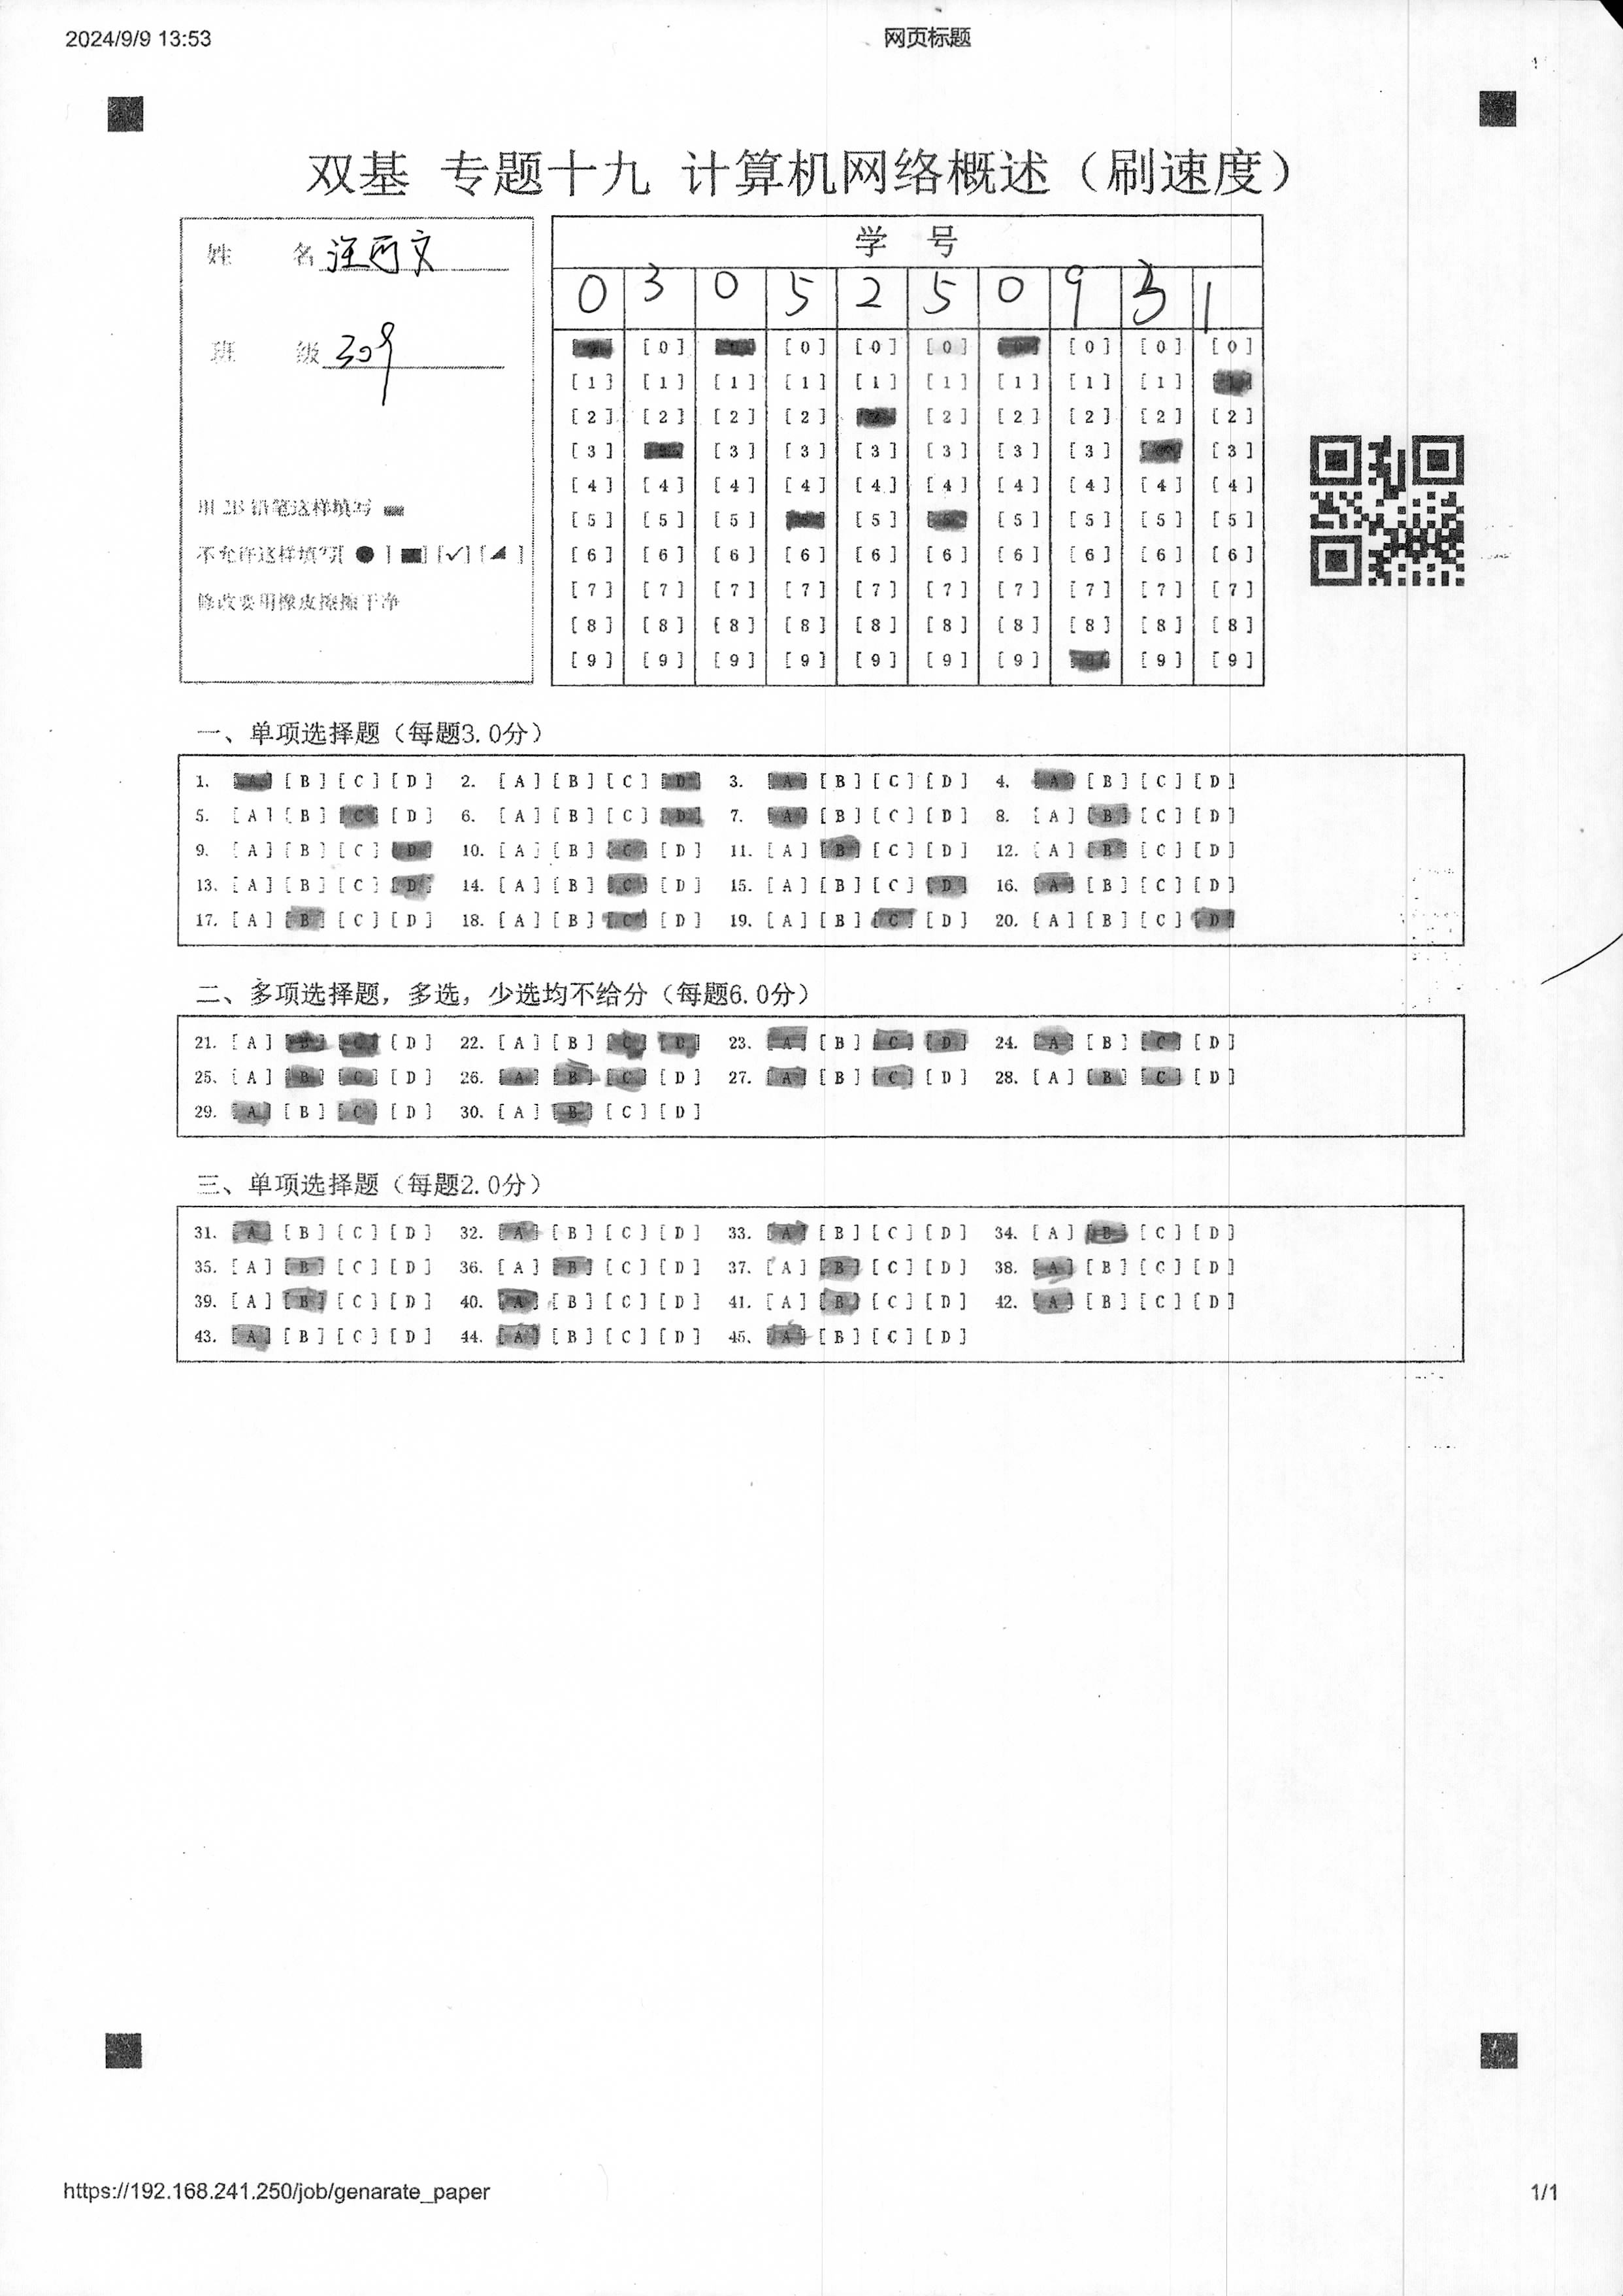 2024/9/9 13:53 网页标题
双基 专题十九 计算机网络概述（刷速度）
姓 名 汪雨文
班 级 309
用 2B 铅笔这样填写
不允许这样填写[ ● ] [■] [✓] [◢ ]
修改要用橡皮擦擦干净
学 号
0 3 0 5 2 5 0 9 3 1
[0] [0] [0] [0] [0] [0]
[1] [1] [1] [1] [1] [1] [1] [1] [1]
[2] [2] [2] [2] [2] [2] [2] [2] [2]
[3] [3] [3] [3] [3] [3] [3] [3]
[4] [4] [4] [4] [4] [4] [4] [4] [4] [4]
[5] [5] [5] [5] [5] [5] [5] [5]
[6] [6] [6] [6] [6] [6] [6] [6] [6] [6]
[7] [7] [7] [7] [7] [7] [7] [7] [7] [7]
[8] [8] [8] [8] [8] [8] [8] [8] [8] [8]
[9] [9] [9] [9] [9] [9] [9] [9] [9] [9]
一、单项选择题（每题3.0分）
1. [A] [B] [C] [D] 2. [A] [B] [C] [D] 3. [A] [B] [C] [D] 4. [A] [B] [C] [D]
5. [A] [B] [C] [D] 6. [A] [B] [C] [D] 7. [A] [B] [C] [D] 8. [A] [B] [C] [D]
9. [A] [B] [C] [D] 10. [A] [B] [C] [D] 11. [A] [B] [C] [D] 12. [A] [B] [C] [D]
13. [A] [B] [C] [D] 14. [A] [B] [C] [D] 15. [A] [B] [C] [D] 16. [A] [B] [C] [D]
17. [A] [B] [C] [D] 18. [A] [B] [C] [D] 19. [A] [B] [C] [D] 20. [A] [B] [C] [D]
二、多项选择题，多选，少选均不给分（每题6.0分）
21. [A] [B] [C] [D] 22. [A] [B] [C] [D] 23. [A] [B] [C] [D] 24. [A] [B] [C] [D]
25. [A] [B] [C] [D] 26. [A] [B] [C] [D] 27. [A] [B] [C] [D] 28. [A] [B] [C] [D]
29. [A] [B] [C] [D] 30. [A] [B] [C] [D]
三、单项选择题（每题2.0分）
31. [A] [B] [C] [D] 32. [A] [B] [C] [D] 33. [A] [B] [C] [D] 34. [A] [B] [C] [D]
35. [A] [B] [C] [D] 36. [A] [B] [C] [D] 37. [A] [B] [C] [D] 38. [A] [B] [C] [D]
39. [A] [B] [C] [D] 40. [A] [B] [C] [D] 41. [A] [B] [C] [D] 42. [A] [B] [C] [D]
43. [A] [B] [C] [D] 44. [A] [B] [C] [D] 45. [A] [B] [C] [D]
https://192.168.241.250/job/genarate_paper 1/1